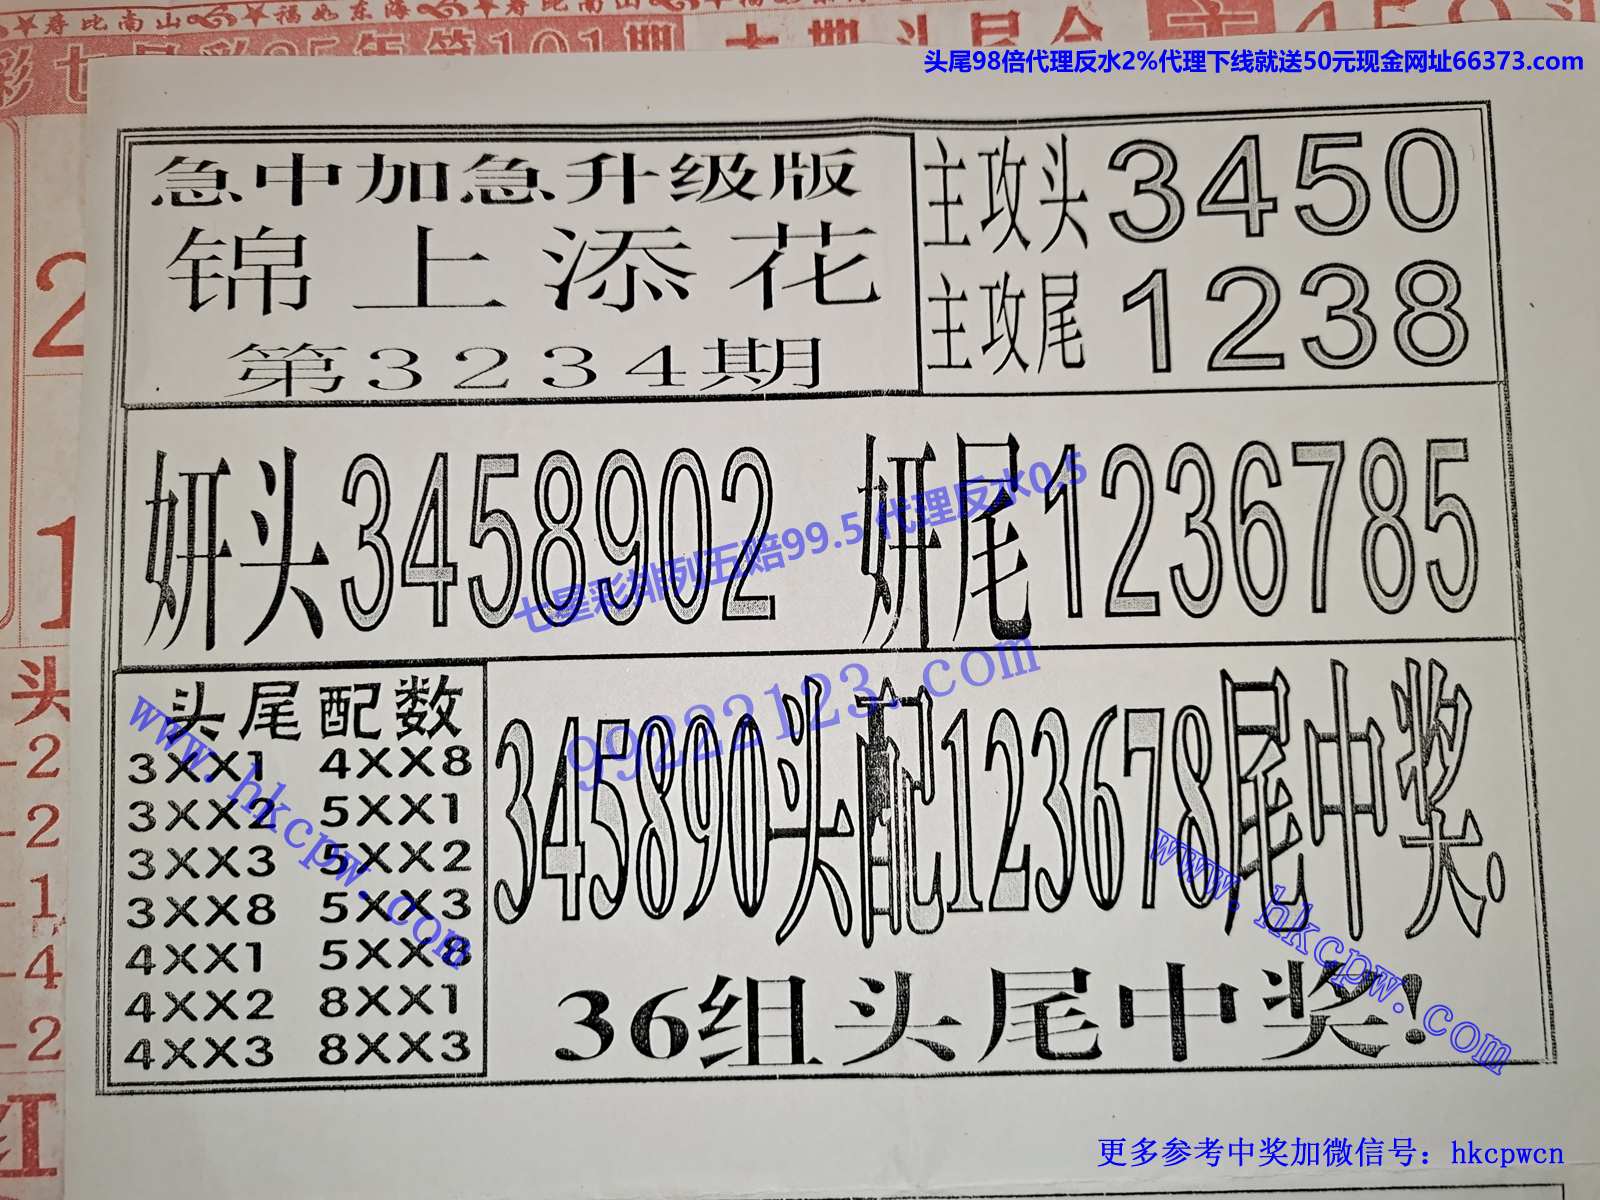 寿比南山 福如东海 寿比南山
彩七星彩25年第101期
头尾98倍代理反水2%代理下线就送50元现金网址66373.com
急中加急升级版
锦上添花
第3234期
主攻头3450
主攻尾1238
妍头3458902 妍尾1236785
七星彩排列五赔99.5 代理反水0.5
99222123.com
头尾配数
3XX1 4XX8
3XX2 5XX1
3XX3 5XX2
3XX8 5XX3
4XX1 5XX8
4XX2 8XX1
4XX3 8XX3
www.hkcpw.com
345890头配123678尾中奖.
36组头尾中奖!
www.hkcpw.com
2
1
头
-2
-2
-1
-4
-2
红
更多参考中奖加微信号：hkcpwcn